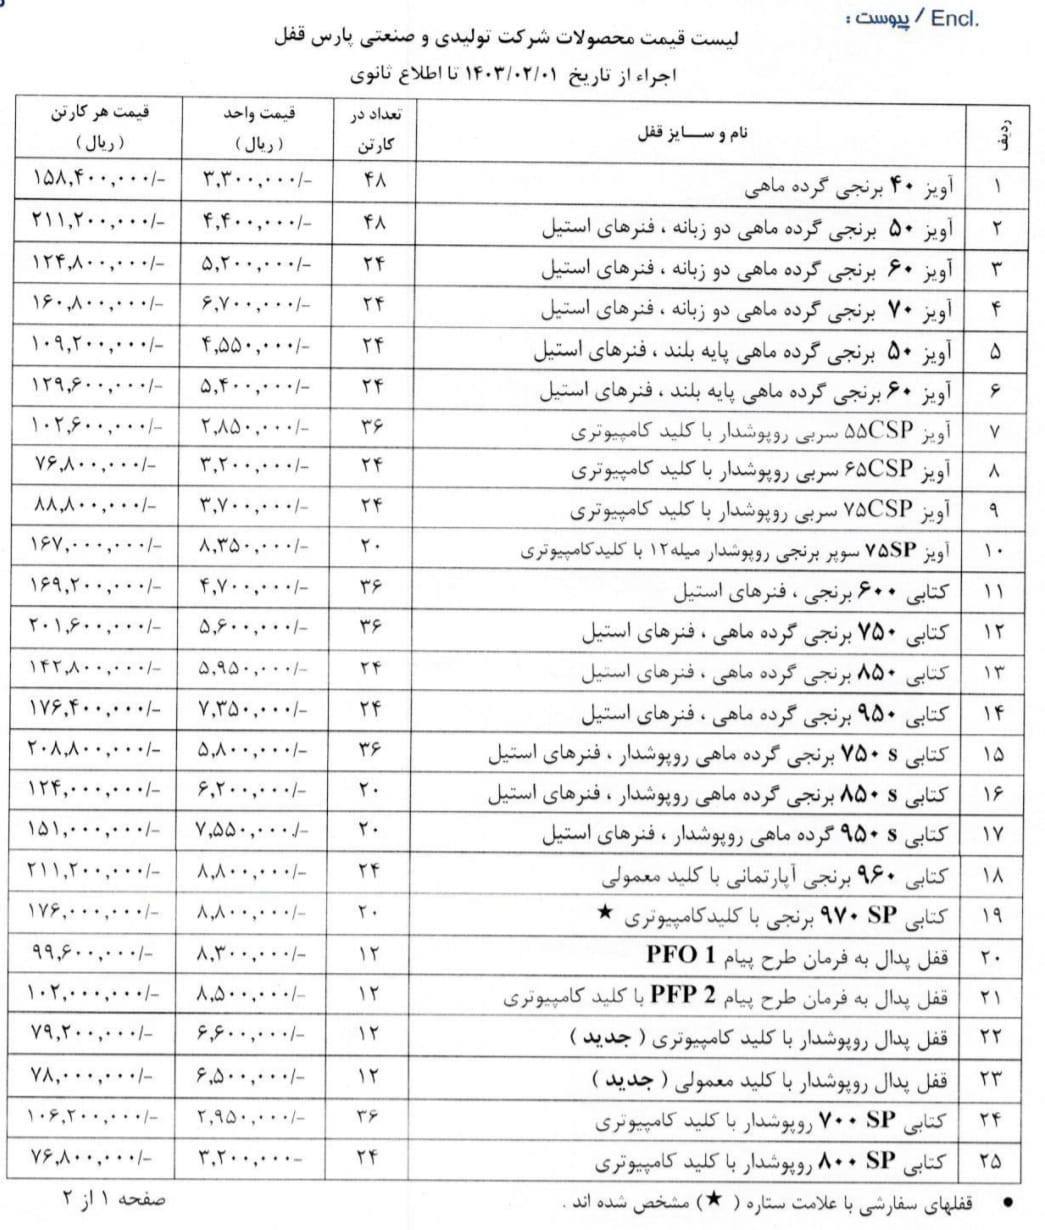 Encl. / پیوست :
لیست قیمت محصولات شرکت تولیدی و صنعتی پارس قفل
اجراء از تاریخ ۱۴۰۳/۰۲/۰۱ تا اطلاع ثانوی
ردیف | نام و ســـایز قفل | تعداد در کارتن | قیمت واحد (ریال) | قیمت هر کارتن (ریال)
۱ | آویز ۴۰ برنجی گرده ماهی | ۴۸ | ۳,۳۰۰,۰۰۰/- | ۱۵۸,۴۰۰,۰۰۰/-
۲ | آویز ۵۰ برنجی گرده ماهی دو زبانه ، فنرهای استیل | ۴۸ | ۴,۴۰۰,۰۰۰/- | ۲۱۱,۲۰۰,۰۰۰/-
۳ | آویز ۶۰ برنجی گرده ماهی دو زبانه ، فنرهای استیل | ۲۴ | ۵,۲۰۰,۰۰۰/- | ۱۲۴,۸۰۰,۰۰۰/-
۴ | آویز ۷۰ برنجی گرده ماهی دو زبانه ، فنرهای استیل | ۲۴ | ۶,۷۰۰,۰۰۰/- | ۱۶۰,۸۰۰,۰۰۰/-
۵ | آویز ۵۰ برنجی گرده ماهی پایه بلند ، فنرهای استیل | ۲۴ | ۴,۵۵۰,۰۰۰/- | ۱۰۹,۲۰۰,۰۰۰/-
۶ | آویز ۶۰ برنجی گرده ماهی پایه بلند ، فنرهای استیل | ۲۴ | ۵,۴۰۰,۰۰۰/- | ۱۲۹,۶۰۰,۰۰۰/-
۷ | آویز ۵۵CSP سربی روپوشدار با کلید کامپیوتری | ۳۶ | ۲,۸۵۰,۰۰۰/- | ۱۰۲,۶۰۰,۰۰۰/-
۸ | آویز ۶۵CSP سربی روپوشدار با کلید کامپیوتری | ۲۴ | ۳,۲۰۰,۰۰۰/- | ۷۶,۸۰۰,۰۰۰/-
۹ | آویز ۷۵CSP سربی روپوشدار با کلید کامپیوتری | ۲۴ | ۳,۷۰۰,۰۰۰/- | ۸۸,۸۰۰,۰۰۰/-
۱۰ | آویز ۷۵SP سوپر برنجی روپوشدار میله۱۲ با کلیدکامپیوتری | ۲۰ | ۸,۳۵۰,۰۰۰/- | ۱۶۷,۰۰۰,۰۰۰/-
۱۱ | کتابی ۶۰۰ برنجی ، فنرهای استیل | ۳۶ | ۴,۷۰۰,۰۰۰/- | ۱۶۹,۲۰۰,۰۰۰/-
۱۲ | کتابی ۷۵۰ برنجی گرده ماهی ، فنرهای استیل | ۳۶ | ۵,۶۰۰,۰۰۰/- | ۲۰۱,۶۰۰,۰۰۰/-
۱۳ | کتابی ۸۵۰ برنجی گرده ماهی ، فنرهای استیل | ۲۴ | ۵,۹۵۰,۰۰۰/- | ۱۴۲,۸۰۰,۰۰۰/-
۱۴ | کتابی ۹۵۰ برنجی گرده ماهی ، فنرهای استیل | ۲۴ | ۷,۳۵۰,۰۰۰/- | ۱۷۶,۴۰۰,۰۰۰/-
۱۵ | کتابی ۷۵۰ s برنجی گرده ماهی روپوشدار ، فنرهای استیل | ۳۶ | ۵,۸۰۰,۰۰۰/- | ۲۰۸,۸۰۰,۰۰۰/-
۱۶ | کتابی ۸۵۰ s برنجی گرده ماهی روپوشدار ، فنرهای استیل | ۲۰ | ۶,۲۰۰,۰۰۰/- | ۱۲۴,۰۰۰,۰۰۰/-
۱۷ | کتابی ۹۵۰ s گرده ماهی روپوشدار ، فنرهای استیل | ۲۰ | ۷,۵۵۰,۰۰۰/- | ۱۵۱,۰۰۰,۰۰۰/-
۱۸ | کتابی ۹۶۰ برنجی آپارتمانی با کلید معمولی | ۲۴ | ۸,۸۰۰,۰۰۰/- | ۲۱۱,۲۰۰,۰۰۰/-
۱۹ | کتابی ۹۷۰ SP برنجی با کلیدکامپیوتری ★ | ۲۰ | ۸,۸۰۰,۰۰۰/- | ۱۷۶,۰۰۰,۰۰۰/-
۲۰ | قفل پدال به فرمان طرح پیام PFO 1 | ۱۲ | ۸,۳۰۰,۰۰۰/- | ۹۹,۶۰۰,۰۰۰/-
۲۱ | قفل پدال به فرمان طرح پیام PFP 2 با کلید کامپیوتری | ۱۲ | ۸,۵۰۰,۰۰۰/- | ۱۰۲,۰۰۰,۰۰۰/-
۲۲ | قفل پدال روپوشدار با کلید کامپیوتری ( جدید ) | ۱۲ | ۶,۶۰۰,۰۰۰/- | ۷۹,۲۰۰,۰۰۰/-
۲۳ | قفل پدال روپوشدار با کلید معمولی ( جدید ) | ۱۲ | ۶,۵۰۰,۰۰۰/- | ۷۸,۰۰۰,۰۰۰/-
۲۴ | کتابی ۷۰۰ SP روپوشدار با کلید کامپیوتری | ۳۶ | ۲,۹۵۰,۰۰۰/- | ۱۰۶,۲۰۰,۰۰۰/-
۲۵ | کتابی ۸۰۰ SP روپوشدار با کلید کامپیوتری | ۲۴ | ۳,۲۰۰,۰۰۰- | ۷۶,۸۰۰,۰۰۰/-
• قفلهای سفارشی با علامت ستاره ( ★ ) مشخص شده اند .
صفحه ۱ از ۲